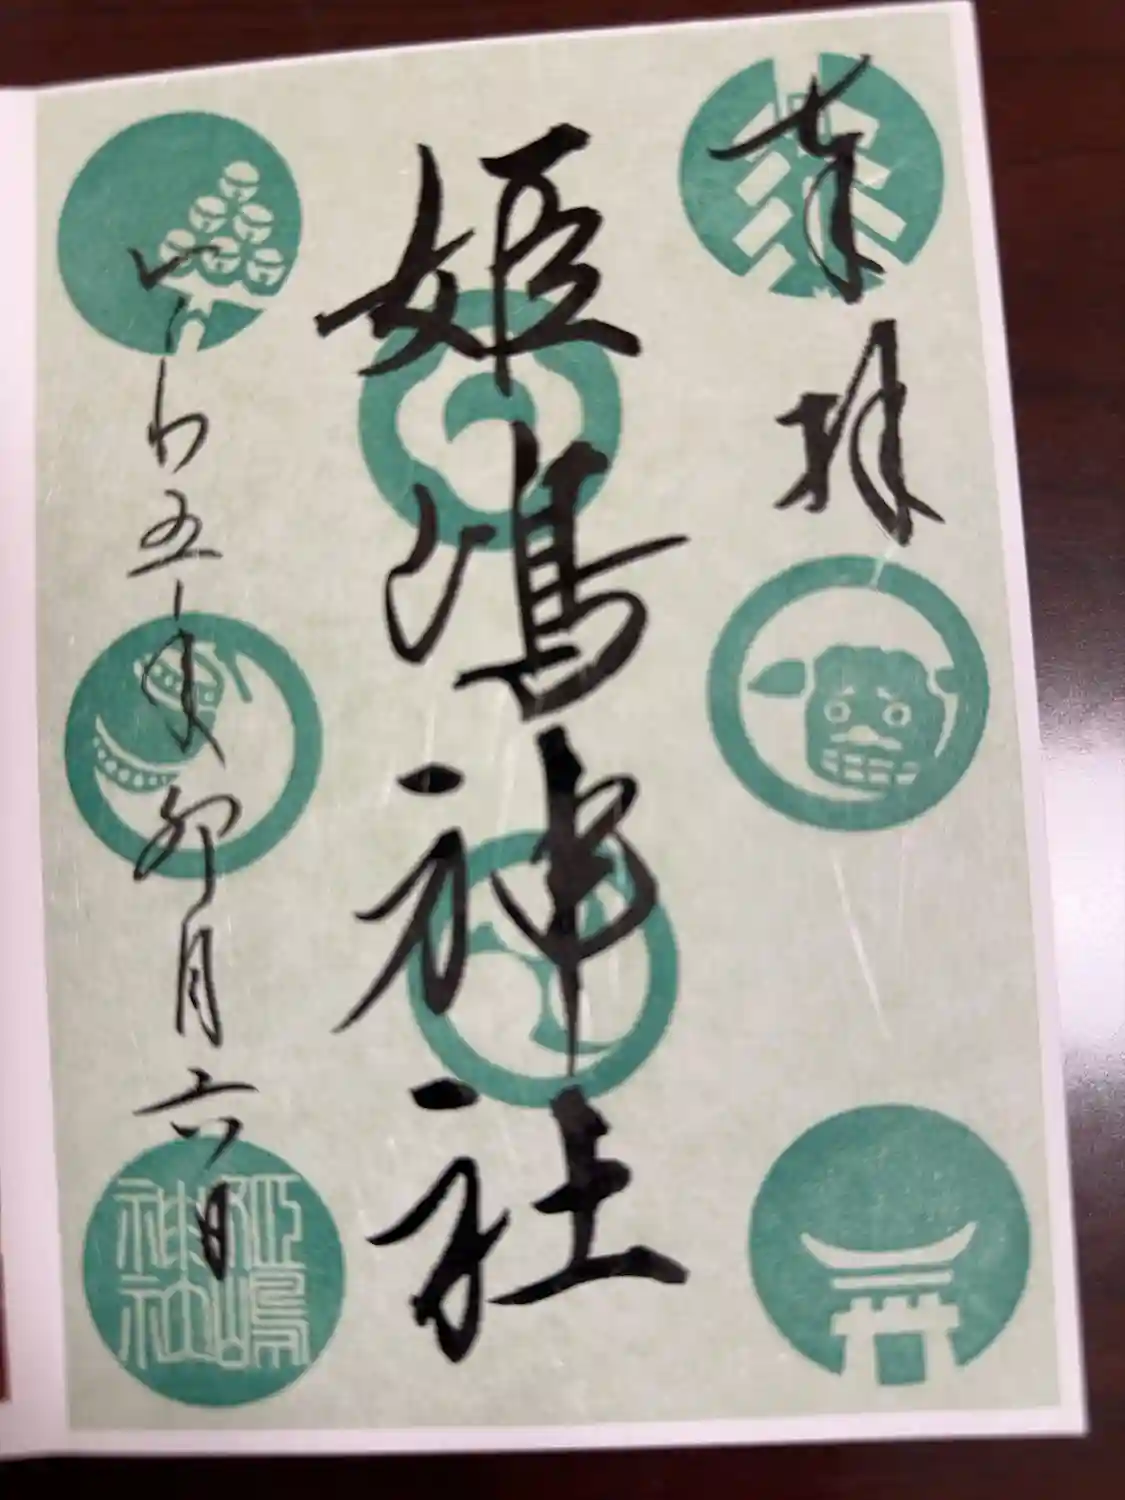 奉拝
姫嶋神社
令和五年卯月六日
姫嶋
神社